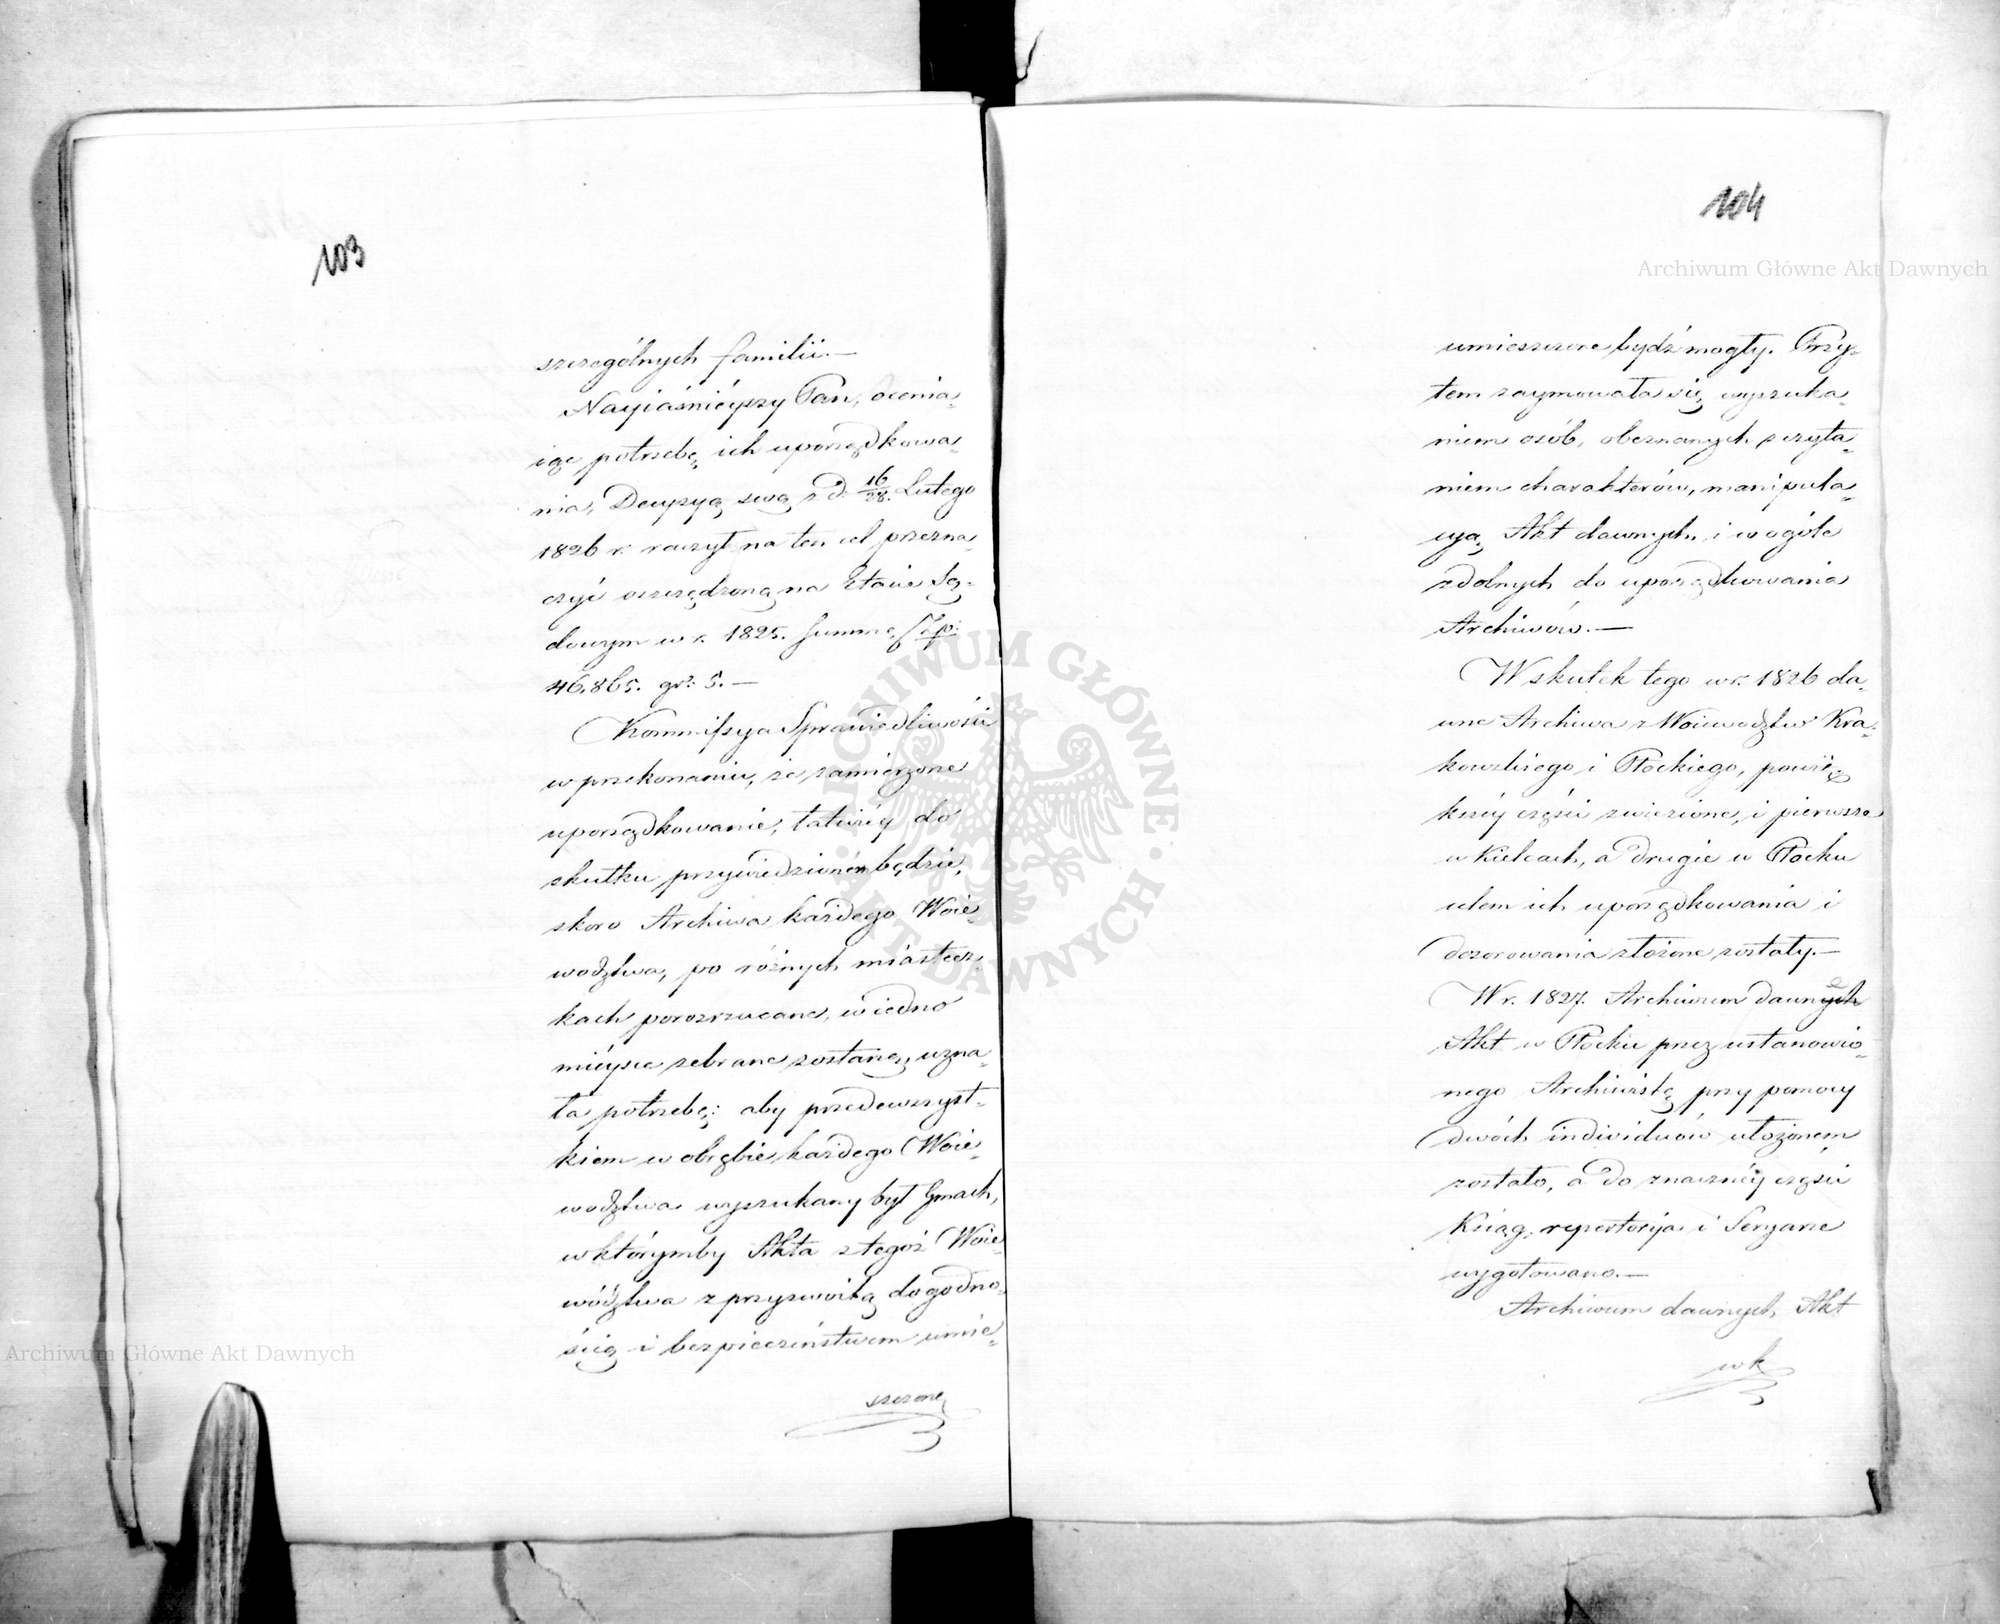 103
szczególnych familii.—
Nayiaśnieyszy Pan, ocenia-
iąc potrzebę ich uporządkowa-
nia, Decyzyą swą z d. 16/28. Lutego
1826 r. raczył na ten cel przezna-
czyć oszczędzoną na Etacie Są-
dowym w r. 1825. Summę Złp:
46,865. gr: 5.—
Kommissya Sprawiedliwości
w przekonaniu, że zamierzone
uporządkowanie, łatwiéy do
skutku przywiedzioném będzie,
skoro Archiwa każdego Woie-
wództwa, po różnych miastecz-
kach porozrzucane, w iedno
mieysce zebrane zostaną, uzna-
ła potrzebę: aby przedewszyst-
kiem w obrębie każdego Woie-
wództwa wyszukany był Gmach,
w którymby Akta z tegoż Woie-
wództwa z przyzwoitą dogodno-
ścią i bezpieczeństwem umie-
szczone
104
umieszczone bydź mogły. Przy-
tem zaymowała się wyszuka-
niem osób, obeznanych z czyta-
niem charakterów, manipula-
cyą Akt dawnych, i w ogóle
zdolnych do uporządkowania
Archiwów.—
W skutek tego w r. 1826 da-
wne Archiwa z Woiewództw Kra-
kowskiego i Płockiego, powię-
kszéy części zwiezione, i pierwsze
w Kielcach, a drugie w Płocku
celem ich uporządkowania i
dozorowania złożone zostały.—
W r. 1827. Archiwum dawnych
Akt w Płocku przez ustanowio-
nego Archiwistę, przy pomocy
dwóch individuów ułożonem
zostało, a do znacznéy części
Ksiąg, repertorja i Seryarze
wygotowano.—
Archiwum dawnych Akt
w K
Archiwum Główne Akt Dawnych
Archiwum Główne Akt Dawnych
ARCHIWUM GŁÓWNE · AKT DAWNYCH ·